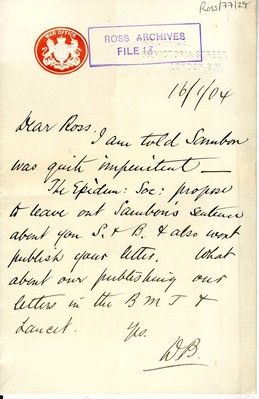 Ross/77/29
WAR OFFICE
ROSS ARCHIVES
FILE 13
VICTORIA STREET,
LONDON, S.W.
16/1/04
Dear Ross.
I am told Sambon
was quite impenitent —
The Epidem: Soc: propose
to leave out Sambon's sentence
about you S. & B. & also wont
publish your letter. What
about our publishing our
letters in the B M J &
Lancet.
Yrs.
D B.